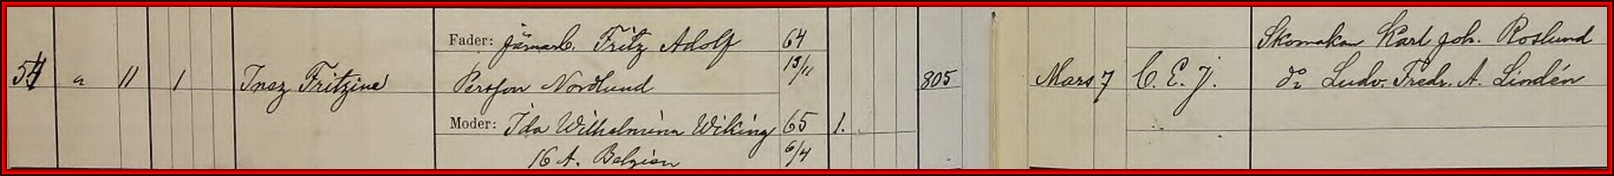 54 a 11 1 Inez Fritzine
Fader: Järnarb. Fritz Adolf 64
Persson Nordlund 13/11
Moder: Ida Wilhelmina Wiking 65 1.
16 A. Belgien 6/4
805 Mars 7 C. E. J.
Skomakare Karl Joh. Roslund
do Ludv. Fredr. A. Lindén